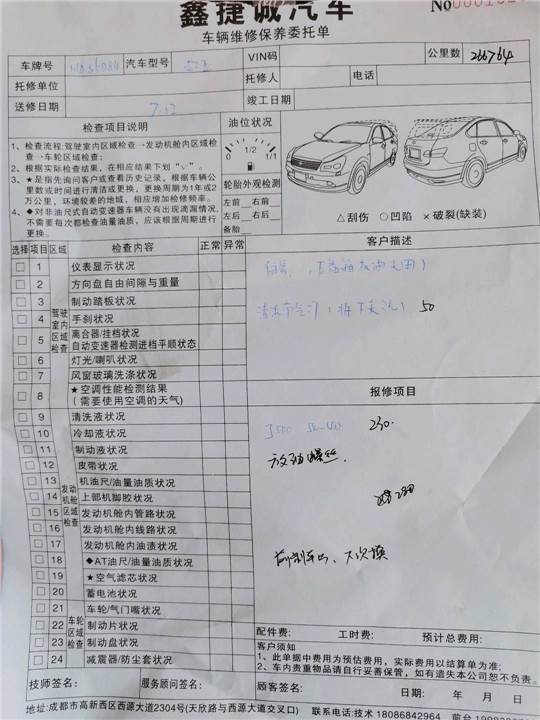 鑫捷诚汽车
车辆维修保养委托单
No
车牌号 汽车型号 VIN码 公里数 266764
托修单位 托修人 电话
送修日期 7.13 竣工日期
检查项目说明 油位状况
1、检查流程:驾驶室内区域检查→发动机舱内区域检查→车轮区域检查;
2、根据实际检查结果,在相应结果下划"√"。
3、★是指先询问客户或查看历史记录,根据车辆公里数或时间进行清洁或更换,更换周期为1年或2万公里,环境较差的地域,相应增加检修频率。
4、◆对非油尺式自动变速器车辆没有出现滴漏情况,不需要每次都检查油量油质,应该根据周期进行更换。
0 1/2 1/1
轮胎外观检测
左前 右前
左后 右后
备胎
△刮伤 ○凹陷 ×破裂(缺装)
选择 项目 区域 检查内容 正常 异常
客户描述
驾驶室内区域检查
1 仪表显示状况
2 方向盘自由间隙与重量
3 制动踏板状况
4 手刹状况
5 离合器/挂档状况
自动变速器检测进档平顺状态
6 灯光/喇叭状况
7 风窗玻璃洗涤状况
8 ★空调性能检测结果
(需要使用空调的天气)
50
报修项目
发动机舱区域检查
9 清洗液状况
10 冷却液状况
11 制动液状况
12 皮带状况
13 机油尺/油量油质状况
14 上部机脚胶状况
15 发动机舱内管路状况
16 发动机舱内线路状况
17 发动机舱内油渍状况
18 ◆AT油尺/油量油质状况
19 ★空气滤芯状况
20 蓄电池状况
230.
放油螺丝.
车轮区域检查
21 车轮/气门嘴状况
22 制动片状况
23 制动盘状况
24 减震器/防尘套状况
配件费: 工时费: 预计总费用:
客户须知
1、此单据中费用为预估费用,实际费用以结算单为准;
2、车内贵重物品请自行妥善保管,如有遗失本公司恕不负责。
技师签名: 服务顾问签名: 顾客签名: 日期: 年 月 日
地址:成都市高新西区西源大道2304号(天欣路与西源大道交叉口) 联系电话:技术 18086842964 前台